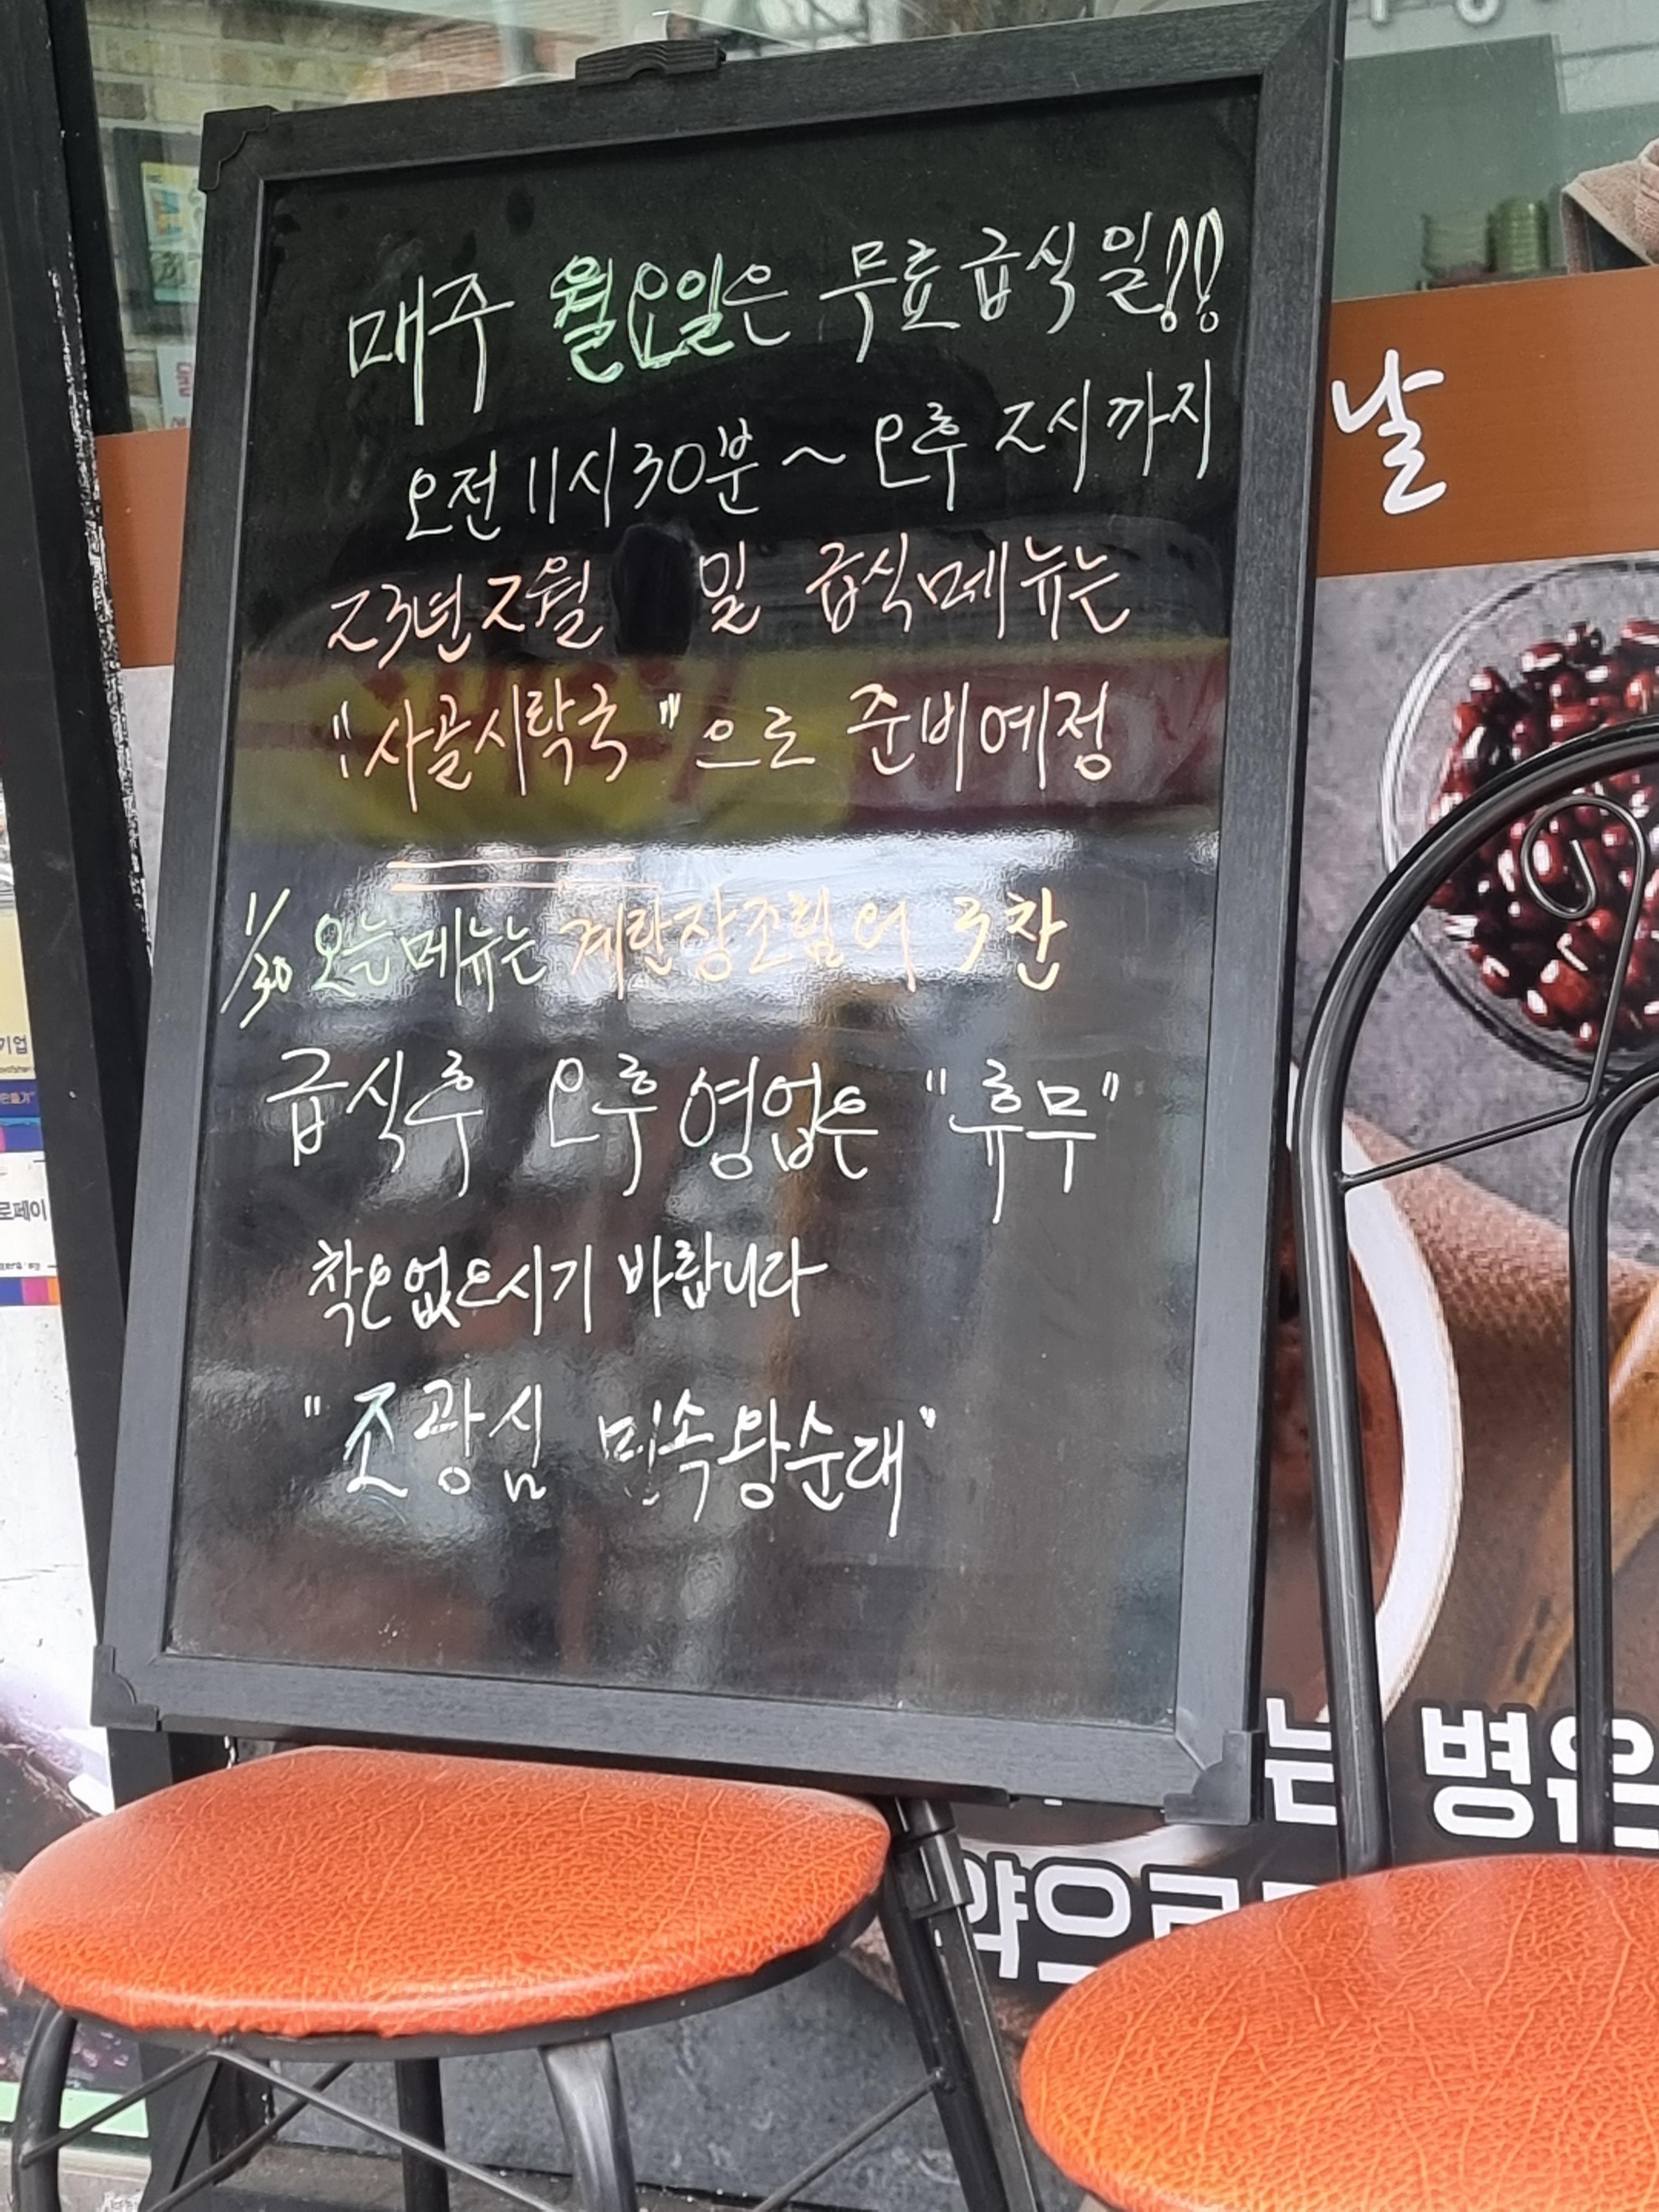 매주 월요일은 무료급식일!!
오전 11시30분 ~ 오후 2시까지
23년 2월 일 급식메뉴는
"사골시락국"으로 준비예정
1/30 오늘메뉴는 계란장조림외 3찬
급식후 오후영업은 "휴무"
착오없으시기 바랍니다
"조광심 민속왕순대"
날
기업
로페이
는 병은
약으로